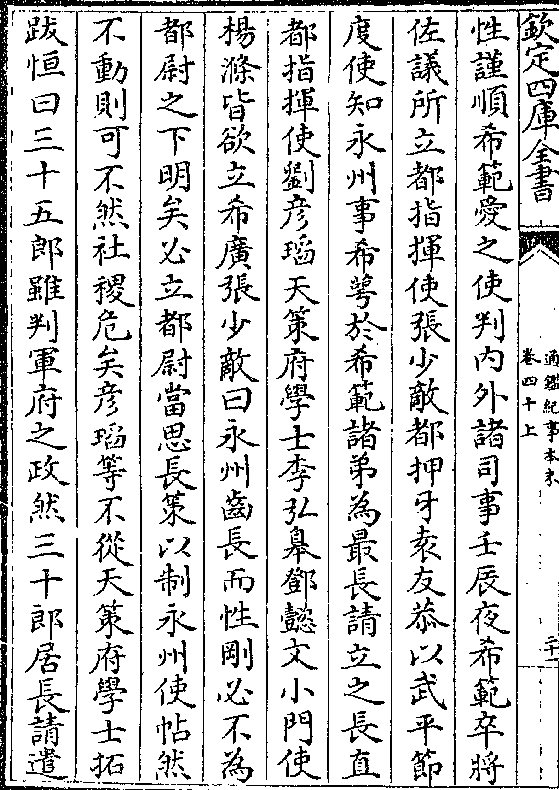 欽定四庫全書
通鑑紀事本末
卷四十上
性謹順希範愛之使判内外諸司事壬辰夜希範卒將
佐議所立都指揮使張少敵都押牙袁友恭以武平節
度使知永州事希萼於希範諸弟為最長請立之長直
都指揮使劉彦瑫天策府學士李弘臯鄧懿文小門使
楊滌皆欲立希廣張少敵曰永州齒長而性剛必不為
都尉之下明矣必立都尉當思長策以制永州使帖然
不動則可不然社稷危矣彦瑫等不從天策府學士拓
跋恒曰三十五郎雖判軍府之政然三十郎居長請遣